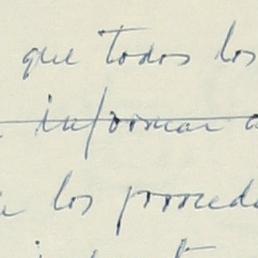 que todos los
informar
los proced